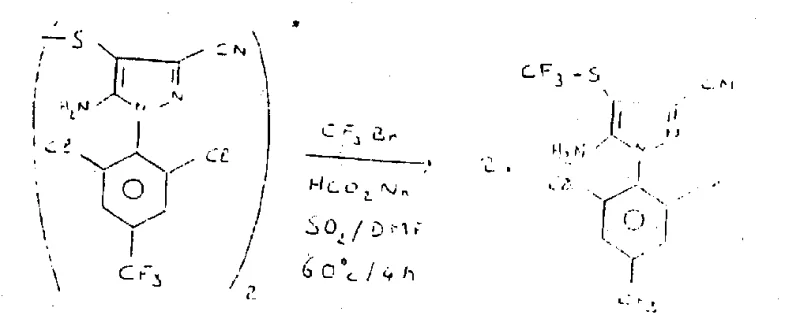 S
CN
N
H₂N
N
Cl
Cl
CF₃
2
CF₃Br
HCO₂Na
SO₂/DMF
60°c/4h
2.
CF₃-S
CN
H₂N
N
N
Cl
CF₃